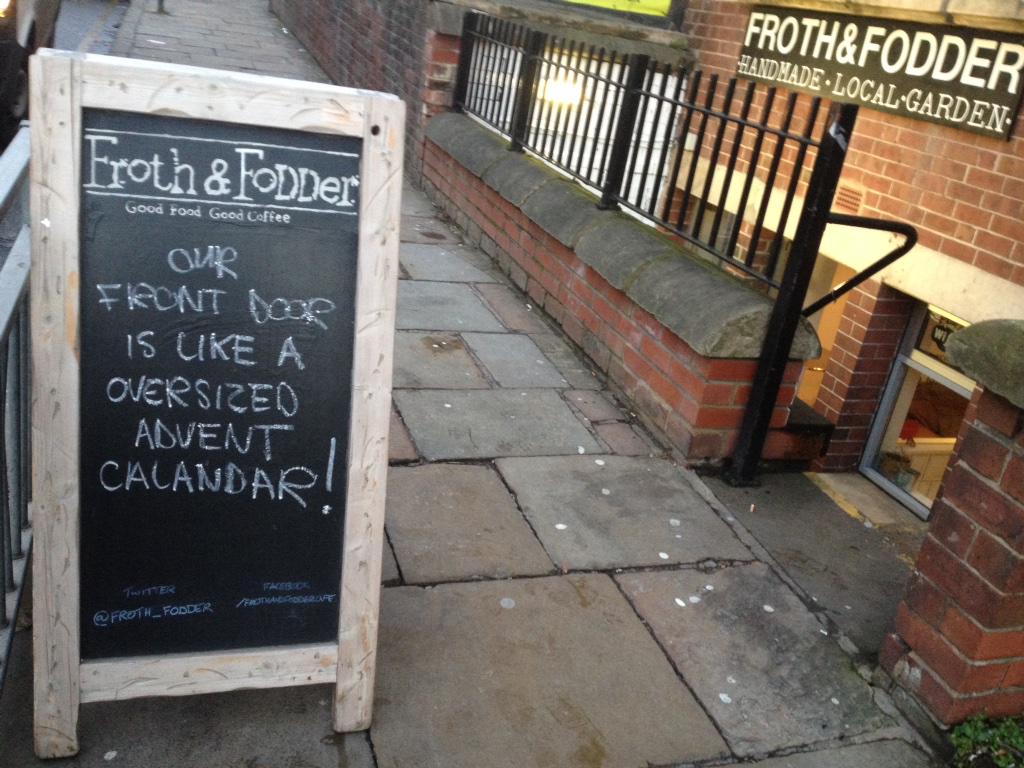 Froth & Fodder
Good Food Good Coffee
OUR
FRONT DOOR
IS LIKE A
OVERSIZED
ADVENT
CALANDAR!
TWITTER
@FROTH_FODDER
FACEBOOK
/FROTHANDFODDERCAFE
FROTH&FODDER
HANDMADE·LOCAL·GARDEN·